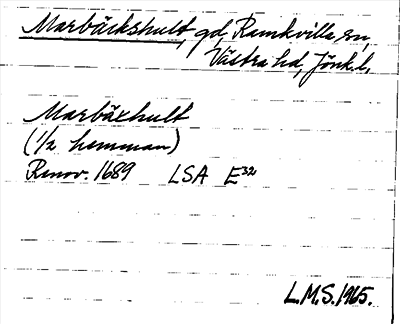 Marbäckshult, gd, Ramkvilla sn,
Västra hd, Jönk.l.
Marbäxhult
(1/2 hemman)
Renov. 1689 LSA E³²
L.M.S. 1965.